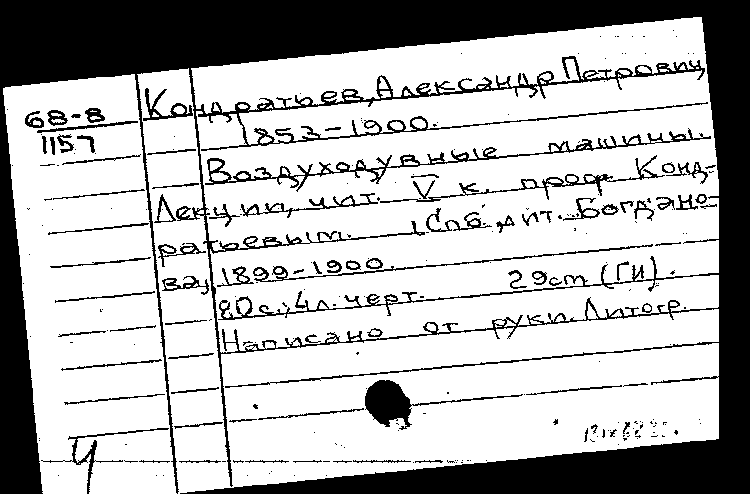 68-8
1157
Кондратьев, Александр Петрович
1853-1900.
Воздуходувные машины.
Лекции, чит. V к. проф. Конд-
ратьевым. (Спб, лит. Богдано-
ва), 1899-1900.
80 с.; 4 л. черт. 29 cm (ГИ).
Написано от руки. Литогр.
Ч